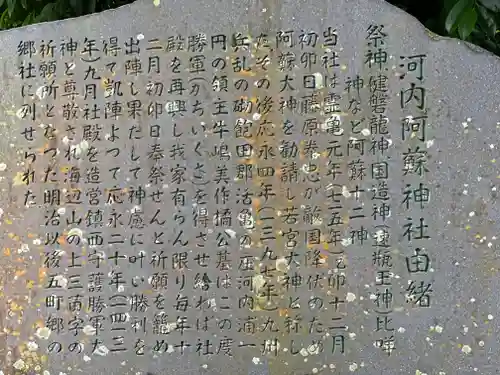 河内阿蘇神社由緒
祭神(健磐龍神 国造神 速瓶玉神)比咩
神など阿蘇十二神
当社は霊亀元年(七一五年)乙卯十二月
初卯日藤原 が敵国降伏のため
阿蘇大神を勧請し若宮大神と称し
たその後応永四年(一三九七年)九州
兵乱の砌飽田郡活亀の庄河内浦一
円の領主牛嶋美作橘公基はこの度
勝軍(かちいくさ)を得させ給れば社
殿を再興し我家有らん限り毎年十
二月初卯日奉祭せんと祈願を籠め
出陣し果たして神慮に叶い勝利を
得て凱陣よって応永二十年(一四一三
年)九月社殿を造営鎮西守護勝軍大
神と尊敬され海辺山の上三苗字の
祈願所となった明治以後五町郷の
郷社に列せられた